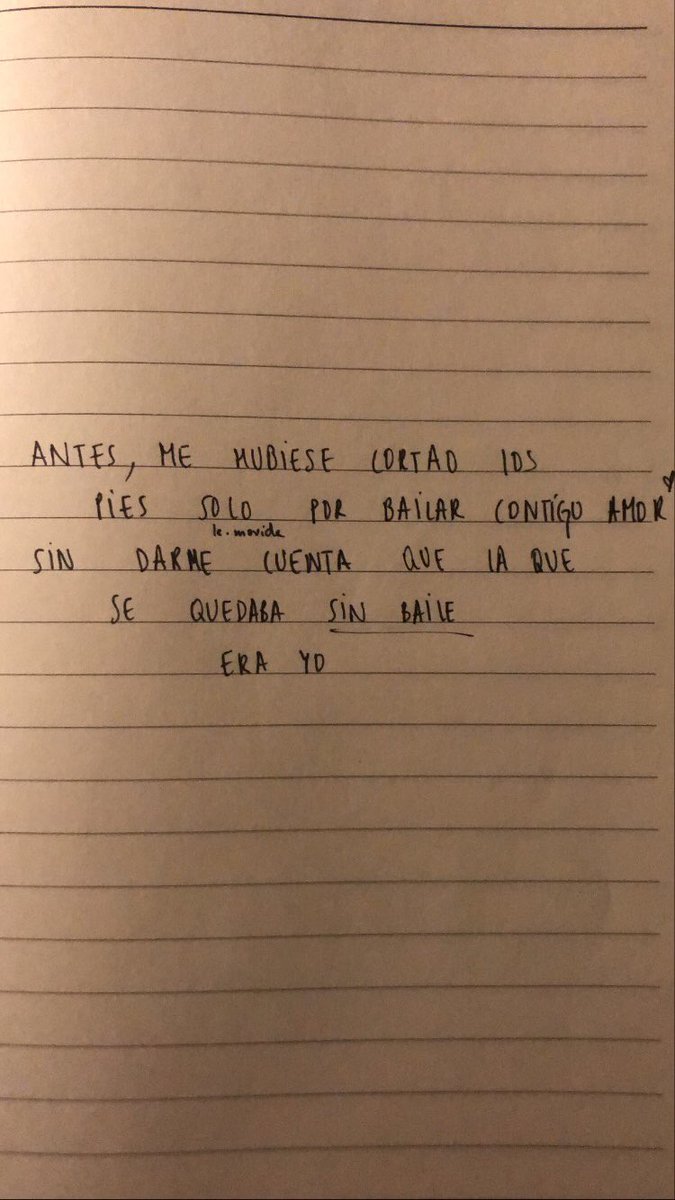 ANTES, ME HUBIESE CORTAO LOS
PIES SOLO POR BAILAR CONTIGO AMOR
le.movide
SIN DARME CUENTA QUE LA QUE
SE QUEDABA SIN BAILE
ERA YO